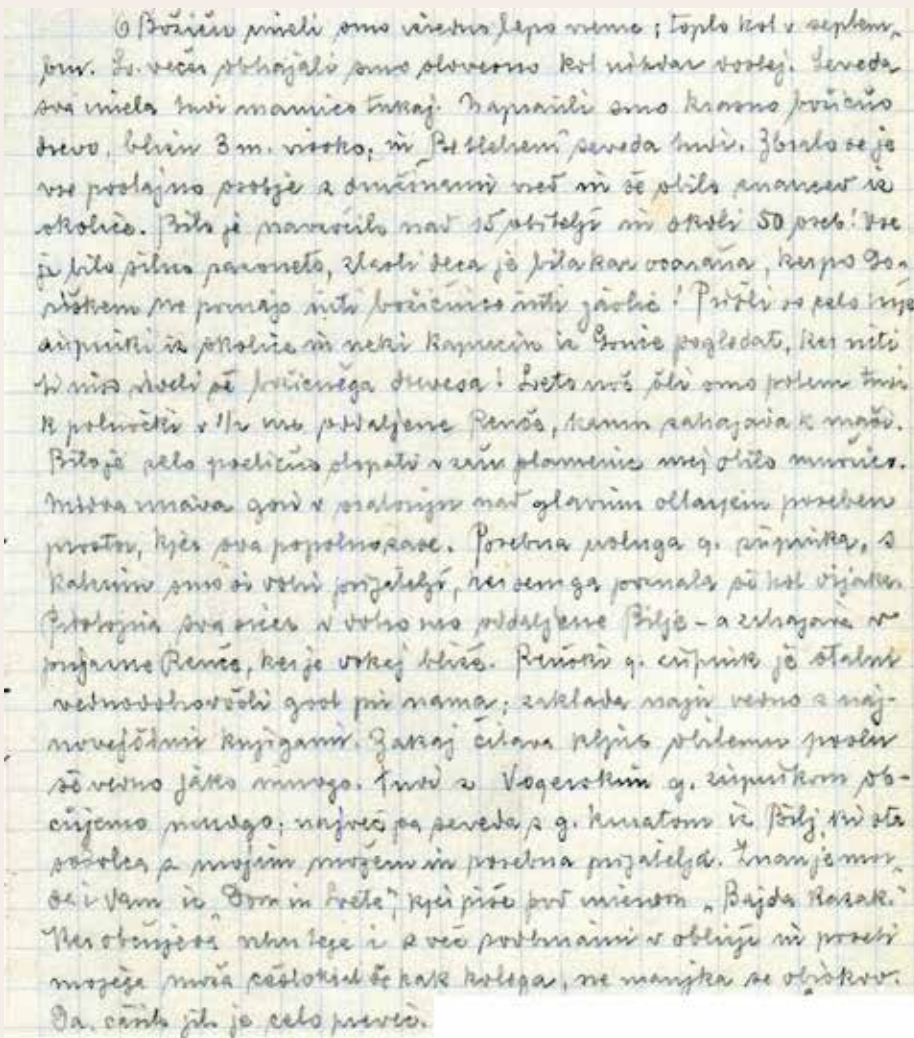 O Božiču imeli smo vedno lepo vreme; toplo kot v septem-
bru. Sv. večer obhajali smo slovesno kot nikdar doslej. Seveda
sva imela tudi mamico tukaj. Napravili smo krasno božično
drevo, blizu 3 m. visoko, in „Betlehem" seveda tudi. Zbralo se je
vse postajno osobje z družinami vred in še obilo znancev iz
okolice. Bilo je navzočih nad 15 obitelji in okoli 50 oseb! Vse
je bilo silno razvneto, zlasti deca je bila kar očarana, ker po Go-
riškem ne poznajo niti božičnice niti jaslic! Prišli so celo trije
župniki iz okolice in neki kapucin iz Gorice pogledat, ker niti
ti niso videli še božičnega drevesa! Sveto noč šli smo potem tudi
k polnočki v ½ ure oddaljene Renče, kamor zahajava k maši.
Bilo je zelo poetično stopati v soju plamenic mej obilo množico.
Midva imava gori v oratoriju nad glavnim oltarjem poseben
prostor, kjer sva popolnoma sama. Posebna usluga g. župnika, s
katerim smo si dobri prijatelji, ker sem ga poznala še kot dijaka.
Pristojna sva sicer v dobro uro oddaljene Bilje – a zahajava v
prijazne Renče, ker je dokaj bliže. Renški g. župnik je stalni
vedno dobrodošli gost pri nama; zaklada naju vedno z naj-
novejšimi knjigami. Zakaj čitava kljub obilemu poslu
še vedno jako mnogo. Tudi z Vogerskim g. župnikom ob-
čujemo mnogo; največ pa seveda z g. kuratom iz Bilj, ki sta
sošolca z mojim možem in posebna prijatelja. Znan je mor-
da i Vam iz „Dom in Sveta", kjer piše pod imenom „Bajda Kazak."
Ker občujeva i z več sodniami v obližji in poseti
mojega moža cesto še kak kolega, ne manjka se obiskov.
Da, časih jih je celo preveč.